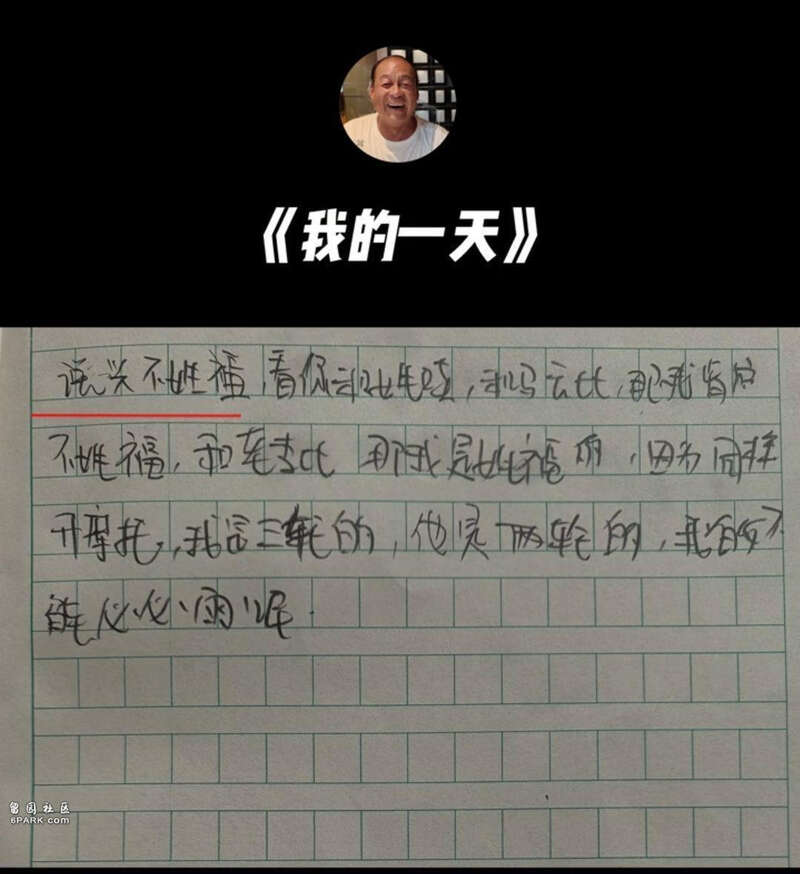 《我的一天》
说兴不姓福，看你和姓比，和马云比，那我肯定
不姓福，和车李比 那我是姓福的，因为同样
开摩托，我是三轮的，他是两轮的，我的好
能必必雨呢.
留园社区
6PARK.COM